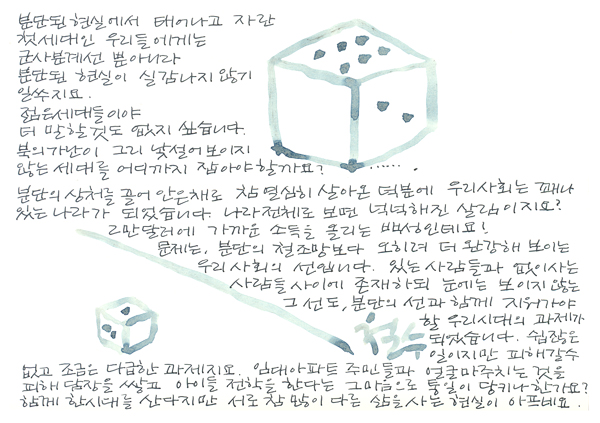 분단된 현실에서 태어나고 자란
첫세대인 우리들에게는
군사분계선 뿐아니라
분단된 현실이 실감나지 않기
일쑤지요.
젊은세대들이야
더 말할것도 없지 싶습니다.
북의가난이 그리 낯설어보이지
않는 세대를 어디까지 잡아야 할까요? ......
분단의 상처를 끌어 안은채로 참 열심히 살아온 덕분에 우리사회는 꽤나
있는 나라가 되었습니다 나라전체로 보면 넉넉해진 살림이지요?
2만달러에 가까운 소득을 올리는 백성인데요!
문제는, 분단의 철조망보다 오히려 더 완강해 보이는
우리사회의 선입니다. 있는 사람들과 없이사는
사람들 사이에 존재하되 눈에는 보이지 않는
그 선도, 분단의 선과 함께 지워가야
할 우리시대의 과제가
되었습니다. 쉽잖은
일이지만 피해갈수
없고 조금은 다급한 과제지요. 임대아파트 주민들과 얼굴마주치는 것을
피해 담장을 쌓고 아이들 전학을 한다는 그마음으로 통일이 당키나한가요?
함께 한시대를 산다지만 서로 참 많이 다른 삶을 사는 현실이 아프네요.